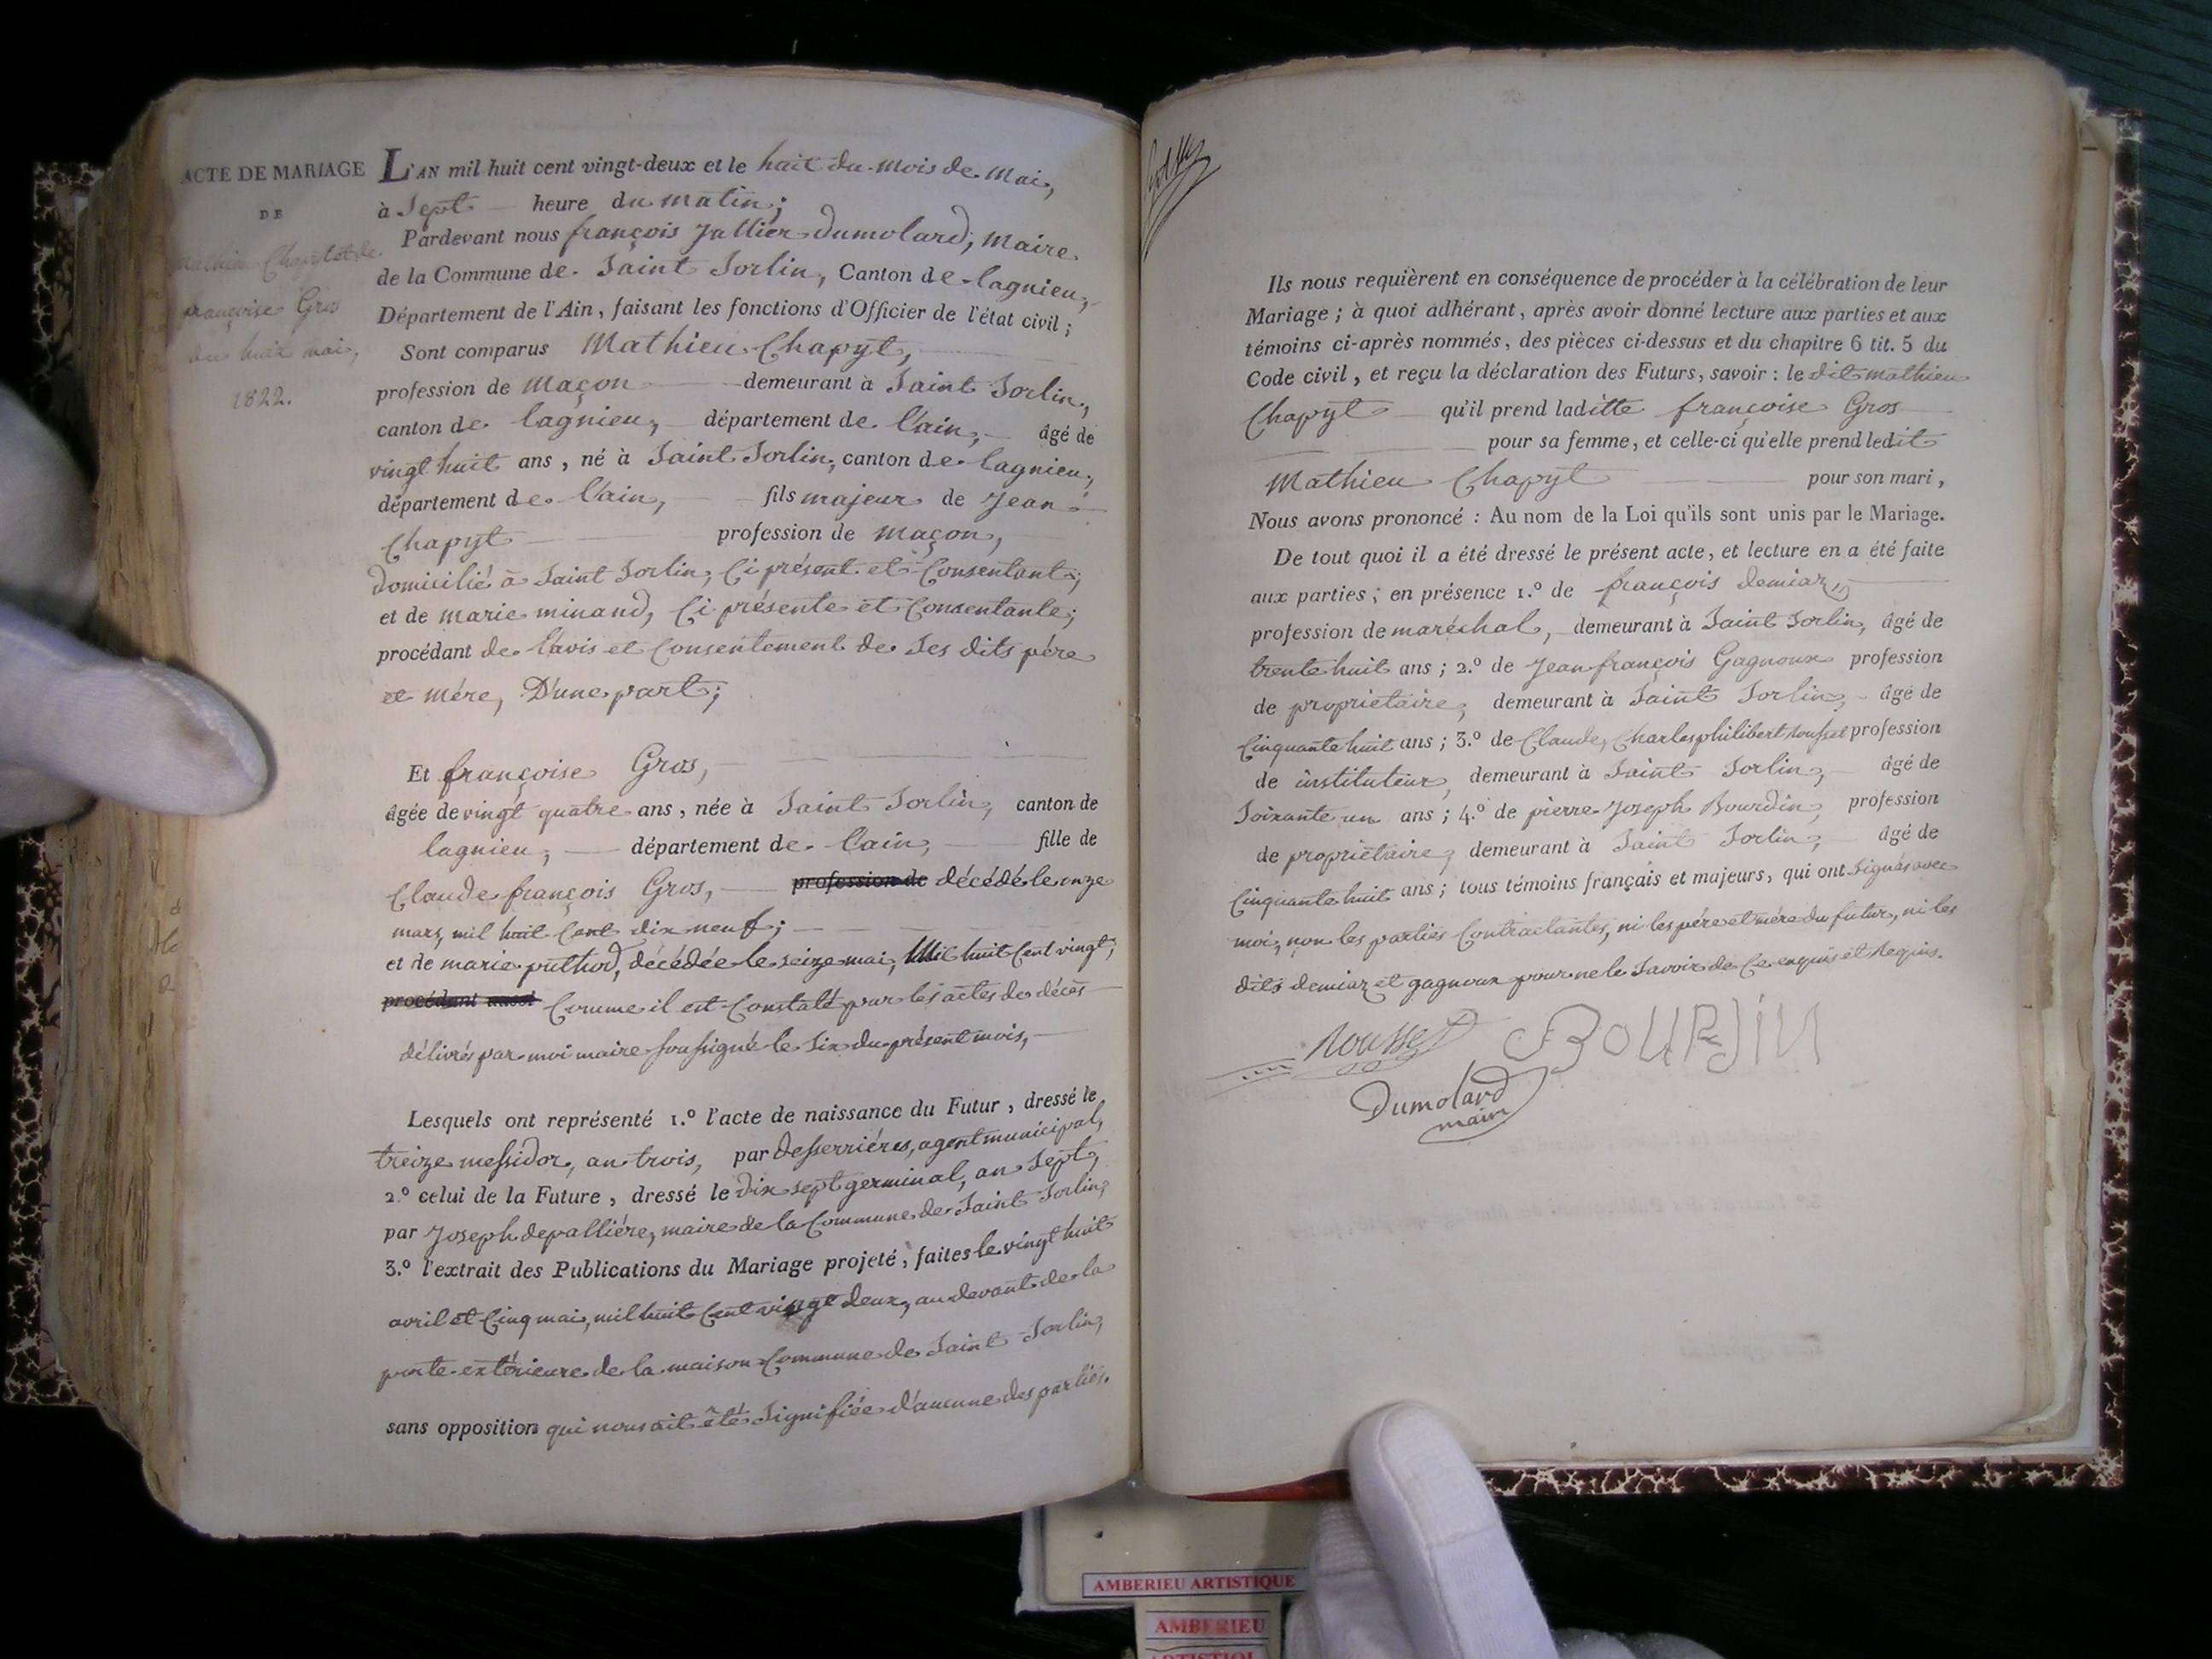 ACTE DE MARIAGE
DE
Mathieu Chapyt et de
françoise Gros
du huit mai,
1822.
L'AN mil huit cent vingt-deux et le huit du mois de Mai,
à Sept heure du matin;
Pardevant nous françois Jallier Dumolard, Maire
de la Commune de Saint Sorlin, Canton de lagnieu,
Département de l'Ain, faisant les fonctions d'Officier de l'état civil;
Sont comparus Mathieu Chapyt,
profession de Maçon demeurant à Saint Sorlin,
canton de lagnieu, département de l'ain, âgé de
vingt huit ans, né à Saint Sorlin, canton de lagnieu,
département de l'ain, fils majeur de Jean
Chapyt profession de maçon,
domicilié à Saint Sorlin, Ci présent et Consentant;
et de marie minand, Ci présente et Consentante;
procédant de l'avis et Consentement de Ses dits père
et mére, D'une part;
Et françoise Gros,
âgée de vingt quatre ans, née à Saint Sorlin, canton de
lagnieu, département de l'ain, fille de
Claude françois Gros, profession de décédé le onze
mars, mil huit Cent dix neuf;
et de marie puthod, décédée le seize mai, Mil huit Cent vingt,
procédant aussi Comme il est Constaté par les actes de décès
délivrés par moi maire soussigné le Six du présent mois,
Lesquels ont représenté 1.º l'acte de naissance du Futur, dressé le
treize messidor, an trois, par Desserriéres, agent municipal,
2.º celui de la Future, dressé le dix sept germinal, an Sept,
par Joseph depalliére, maire de la Commune de Saint Sorlin,
3.º l'extrait des Publications du Mariage projeté, faites le vingt huit
avril et Cinq mai, mil huit Cent vingt deux, au devant de la
porte extérieure de la maison Commune de Saint Sorlin,
sans opposition qui nous ait été Signifiée d'aucune des parties.
Ils nous requièrent en conséquence de procéder à la célébration de leur
Mariage; à quoi adhérant, après avoir donné lecture aux parties et aux
témoins ci-après nommés, des pièces ci-dessus et du chapitre 6 tit. 5 du
Code civil, et reçu la déclaration des Futurs, savoir: le dit mathieu
Chapyt qu'il prend laditte françoise Gros
pour sa femme, et celle-ci qu'elle prend ledit
Mathieu Chapyt pour son mari,
Nous avons prononcé: Au nom de la Loi qu'ils sont unis par le Mariage.
De tout quoi il a été dressé le présent acte, et lecture en a été faite
aux parties; en présence 1.º de françois demiaz,
profession de maréchal, demeurant à Saint Sorlin, âgé de
trente huit ans; 2.º de Jean françois Gagnoux profession
de propriétaire, demeurant à Saint Sorlin, âgé de
Cinquante huit ans; 3.º de Claude, Charles philibert Rousset profession
de instituteur, demeurant à Saint Sorlin, âgé de
Soixante un ans; 4.º de pierre Joseph Bourdin, profession
de propriétaire, demeurant à Saint Sorlin, âgé de
Cinquante huit ans; tous témoins français et majeurs, qui ont Signés avec
moi, non les parties Contractantes, ni les pére et mére du futur, ni les
dits demiaz et gagnoux pour ne le Savoir de Ce enquis et Requis.
Rousset BOURDIN
Dumolard
maire
AMBERIEU ARTISTIQUE
AMBERIEU